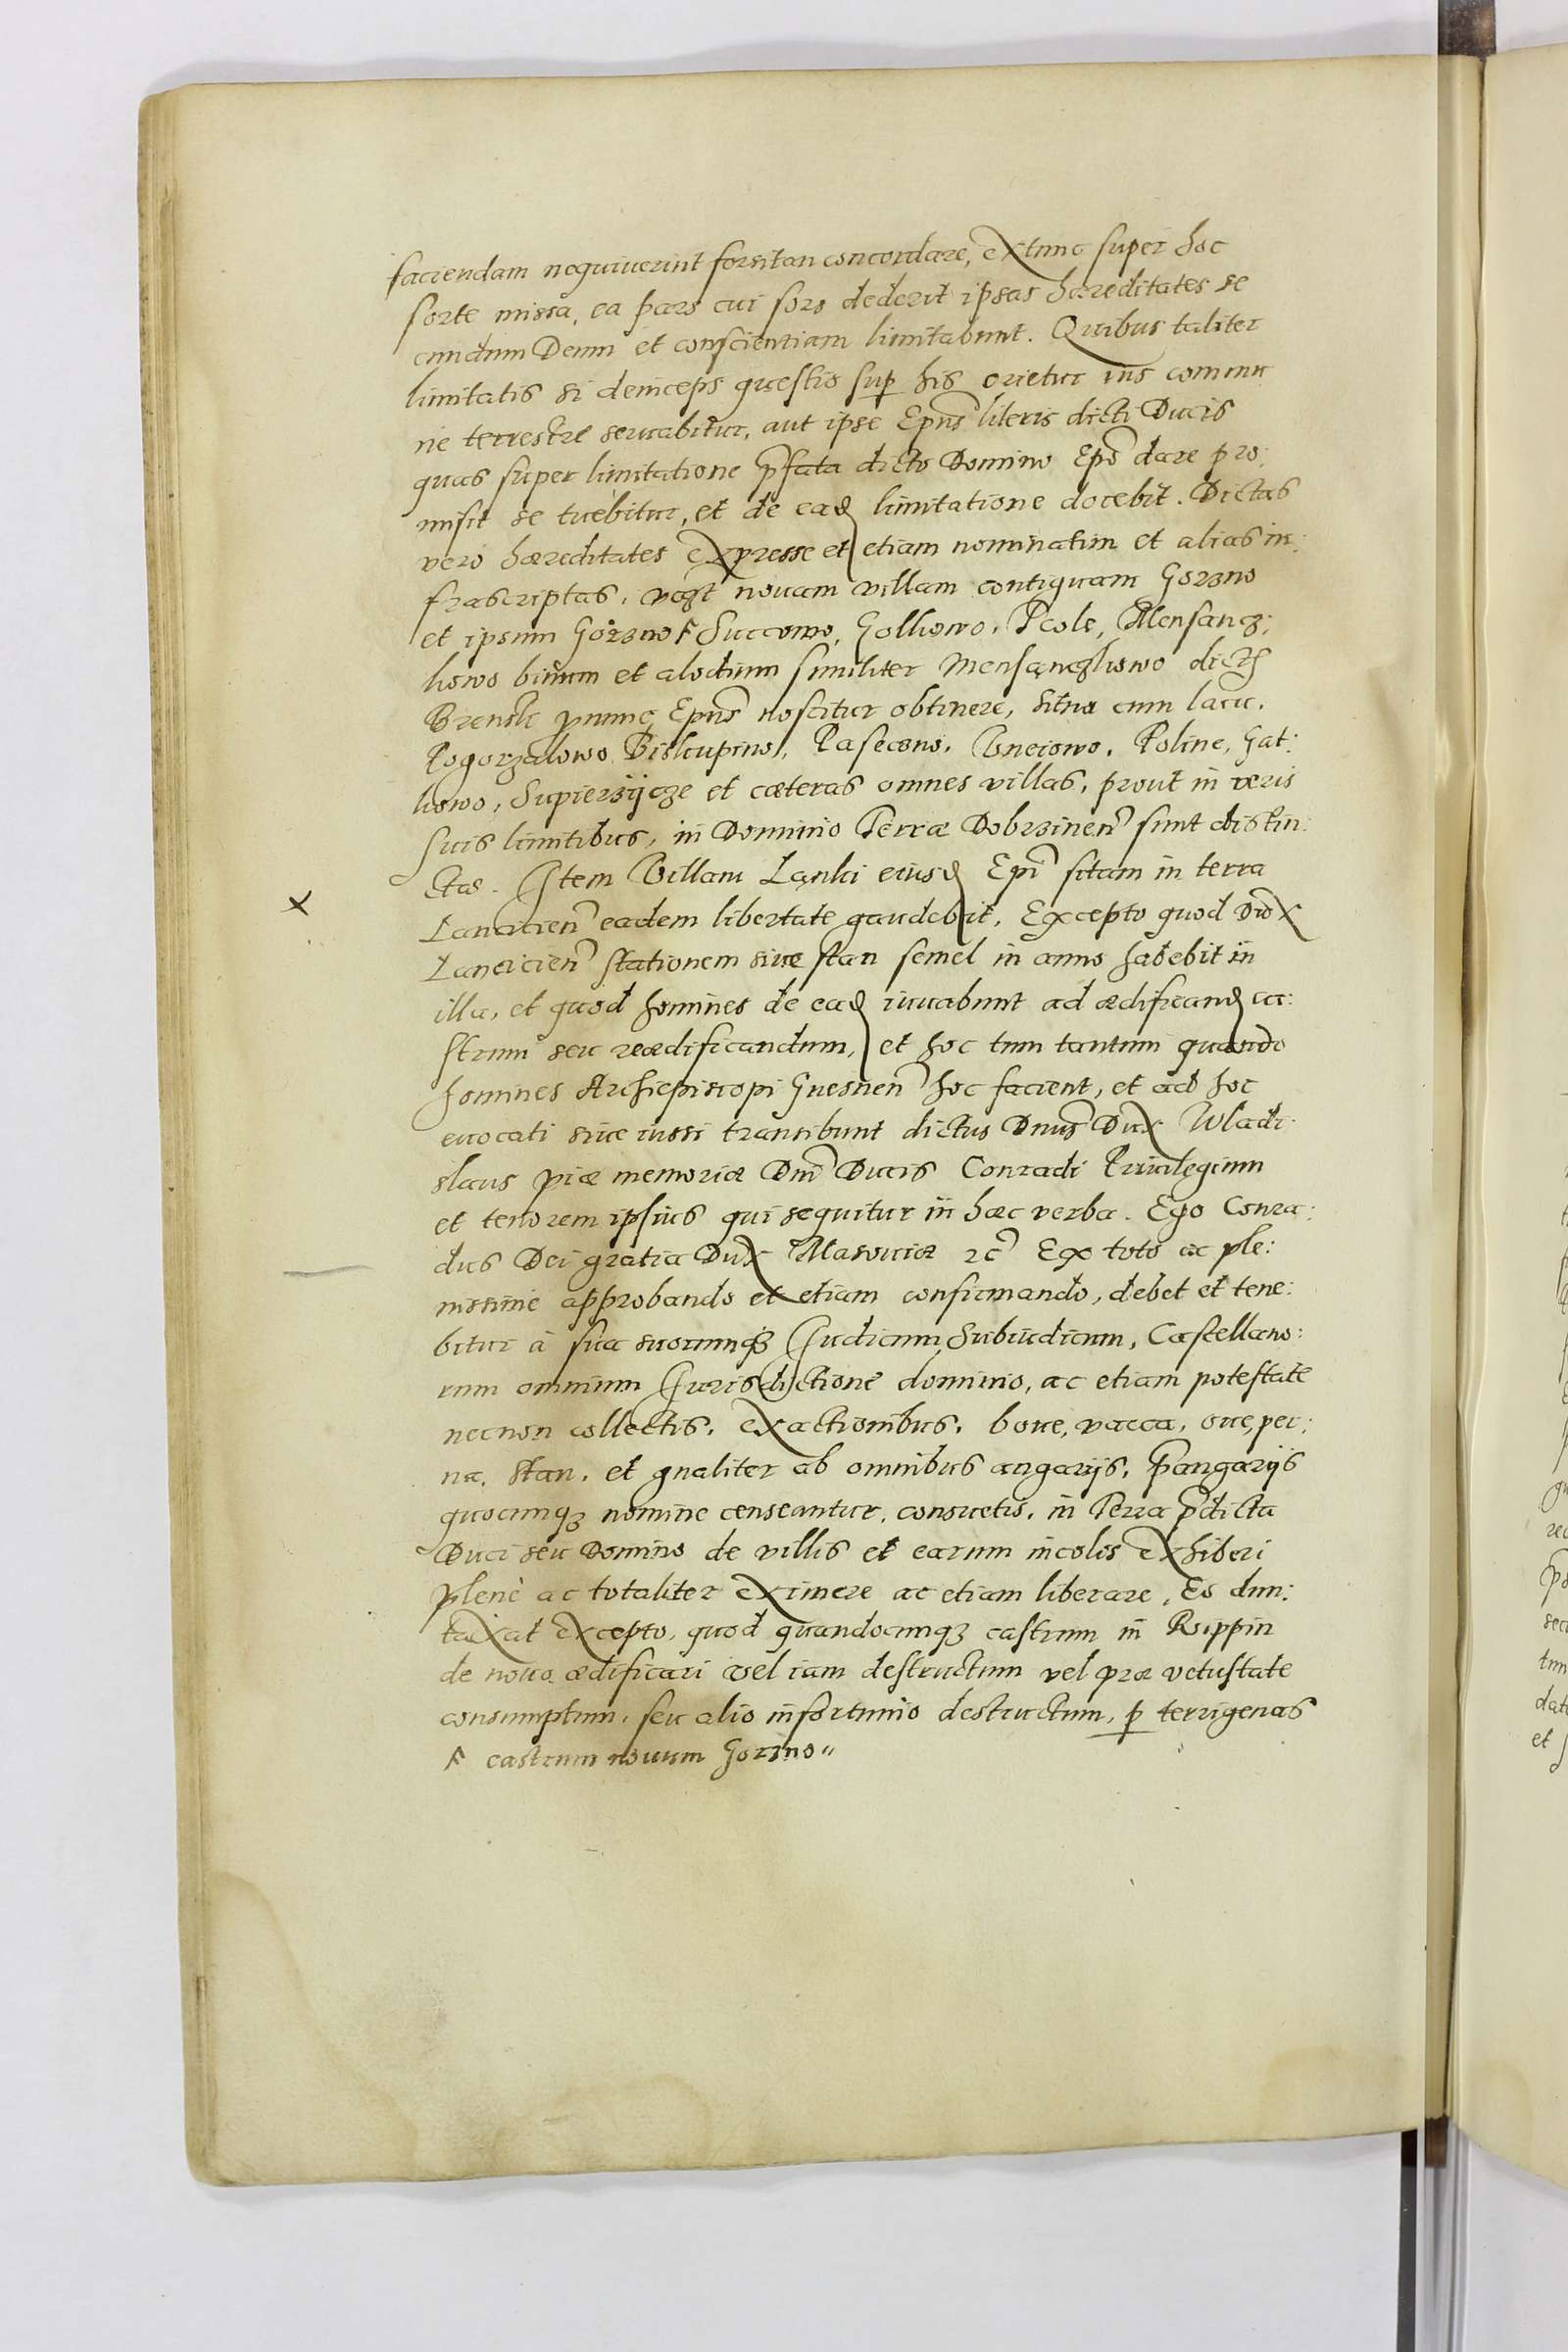 faciendam nequiuerint forsitan concordare, extunc super hoc
sorte missa, ea pars cui sors dederit ipsas hæreditates se
cundum Deum et conscientiam limitabunt. Quibus taliter
limitatis si deinceps questio sup his orietur ius commu
ne terrestre seruabitur, aut ipse Epũs literis dicti Ducis
quas super limitatione p̃fata dicto Domino Epõ dare pro:
misit se tuebitur, et de eađ limitatione docebit. Dictas
vero hæreditates expresse et etiam nominatim et alias in:
frascriptas, vczt nouam villam contiguam Gorzno
et ipsum Gorzno ꟻ Succowo, Golkowo, Pcole, Mensancz:
kowo binum et alodium similiter Mensanczkowo
Brensk Epũs noscitur obtinere, situa cum lacu.
Pogorzalowo Biskupino, Pasecono, Cuneiowo, Poline, Gat:
kowo, Supiersijcze et cæteras omnes villas, prout in veris
suis limitibus, in Dominio Terræ Dobrzineñ sunt distin:
ctas. Item Villam Lanki eiusđ Epĩ sitam in terra
Lanciciеñ eadem libertate gaudebit, Excepto quod Dux
Lancicieñ stationem siue stan semel in anno habebit in
illa, et quod homines de eađ iuuabunt ad ædificanđ ca:
strum seu reædificandum, et hoc tum tantum quando
homines Archiepiscopi Gnesneñ hoc facient, et ad hoc
euocati siue iussi transibunt dictus Dnũs Dux Wladi:
slaus piæ memoriæ Dnĩ Ducis Conradi Priuilegium
et tenorem ipsius qui sequitur in hæc verba. Ego Conra:
dus Dei gratia Dux Masouiæ &c̃ Ex toto ac ple:
nissime approbando et etiam confirmando, debet et tene:
bitur à sua suorumq₃ Iudicum, Subiudicum, Castellano:
rum omnium Iurisdictione dominio, ac etiam potestate
necnon collectis, exactionibus, boue, vacca, oue, per:
na, stan, et gnaliter ab omnibus angarijs, p̃angarijs
quocumq₃ nomine censeantur, consuetis, in Terra p̃dicta
Duci seu Domino de villis et earum incolis exhiberi
plenè ac totaliter eximere ac etiam liberare, Eo dun:
taxat excepto, quod quandocumq₃ castrum in Ruppin
de nouo ædificari vel iam destructum vel præ vetustate
consumptum, seu alio infortunio destructum, p terrigenas
ꟻ castrum nouum Gorzno "